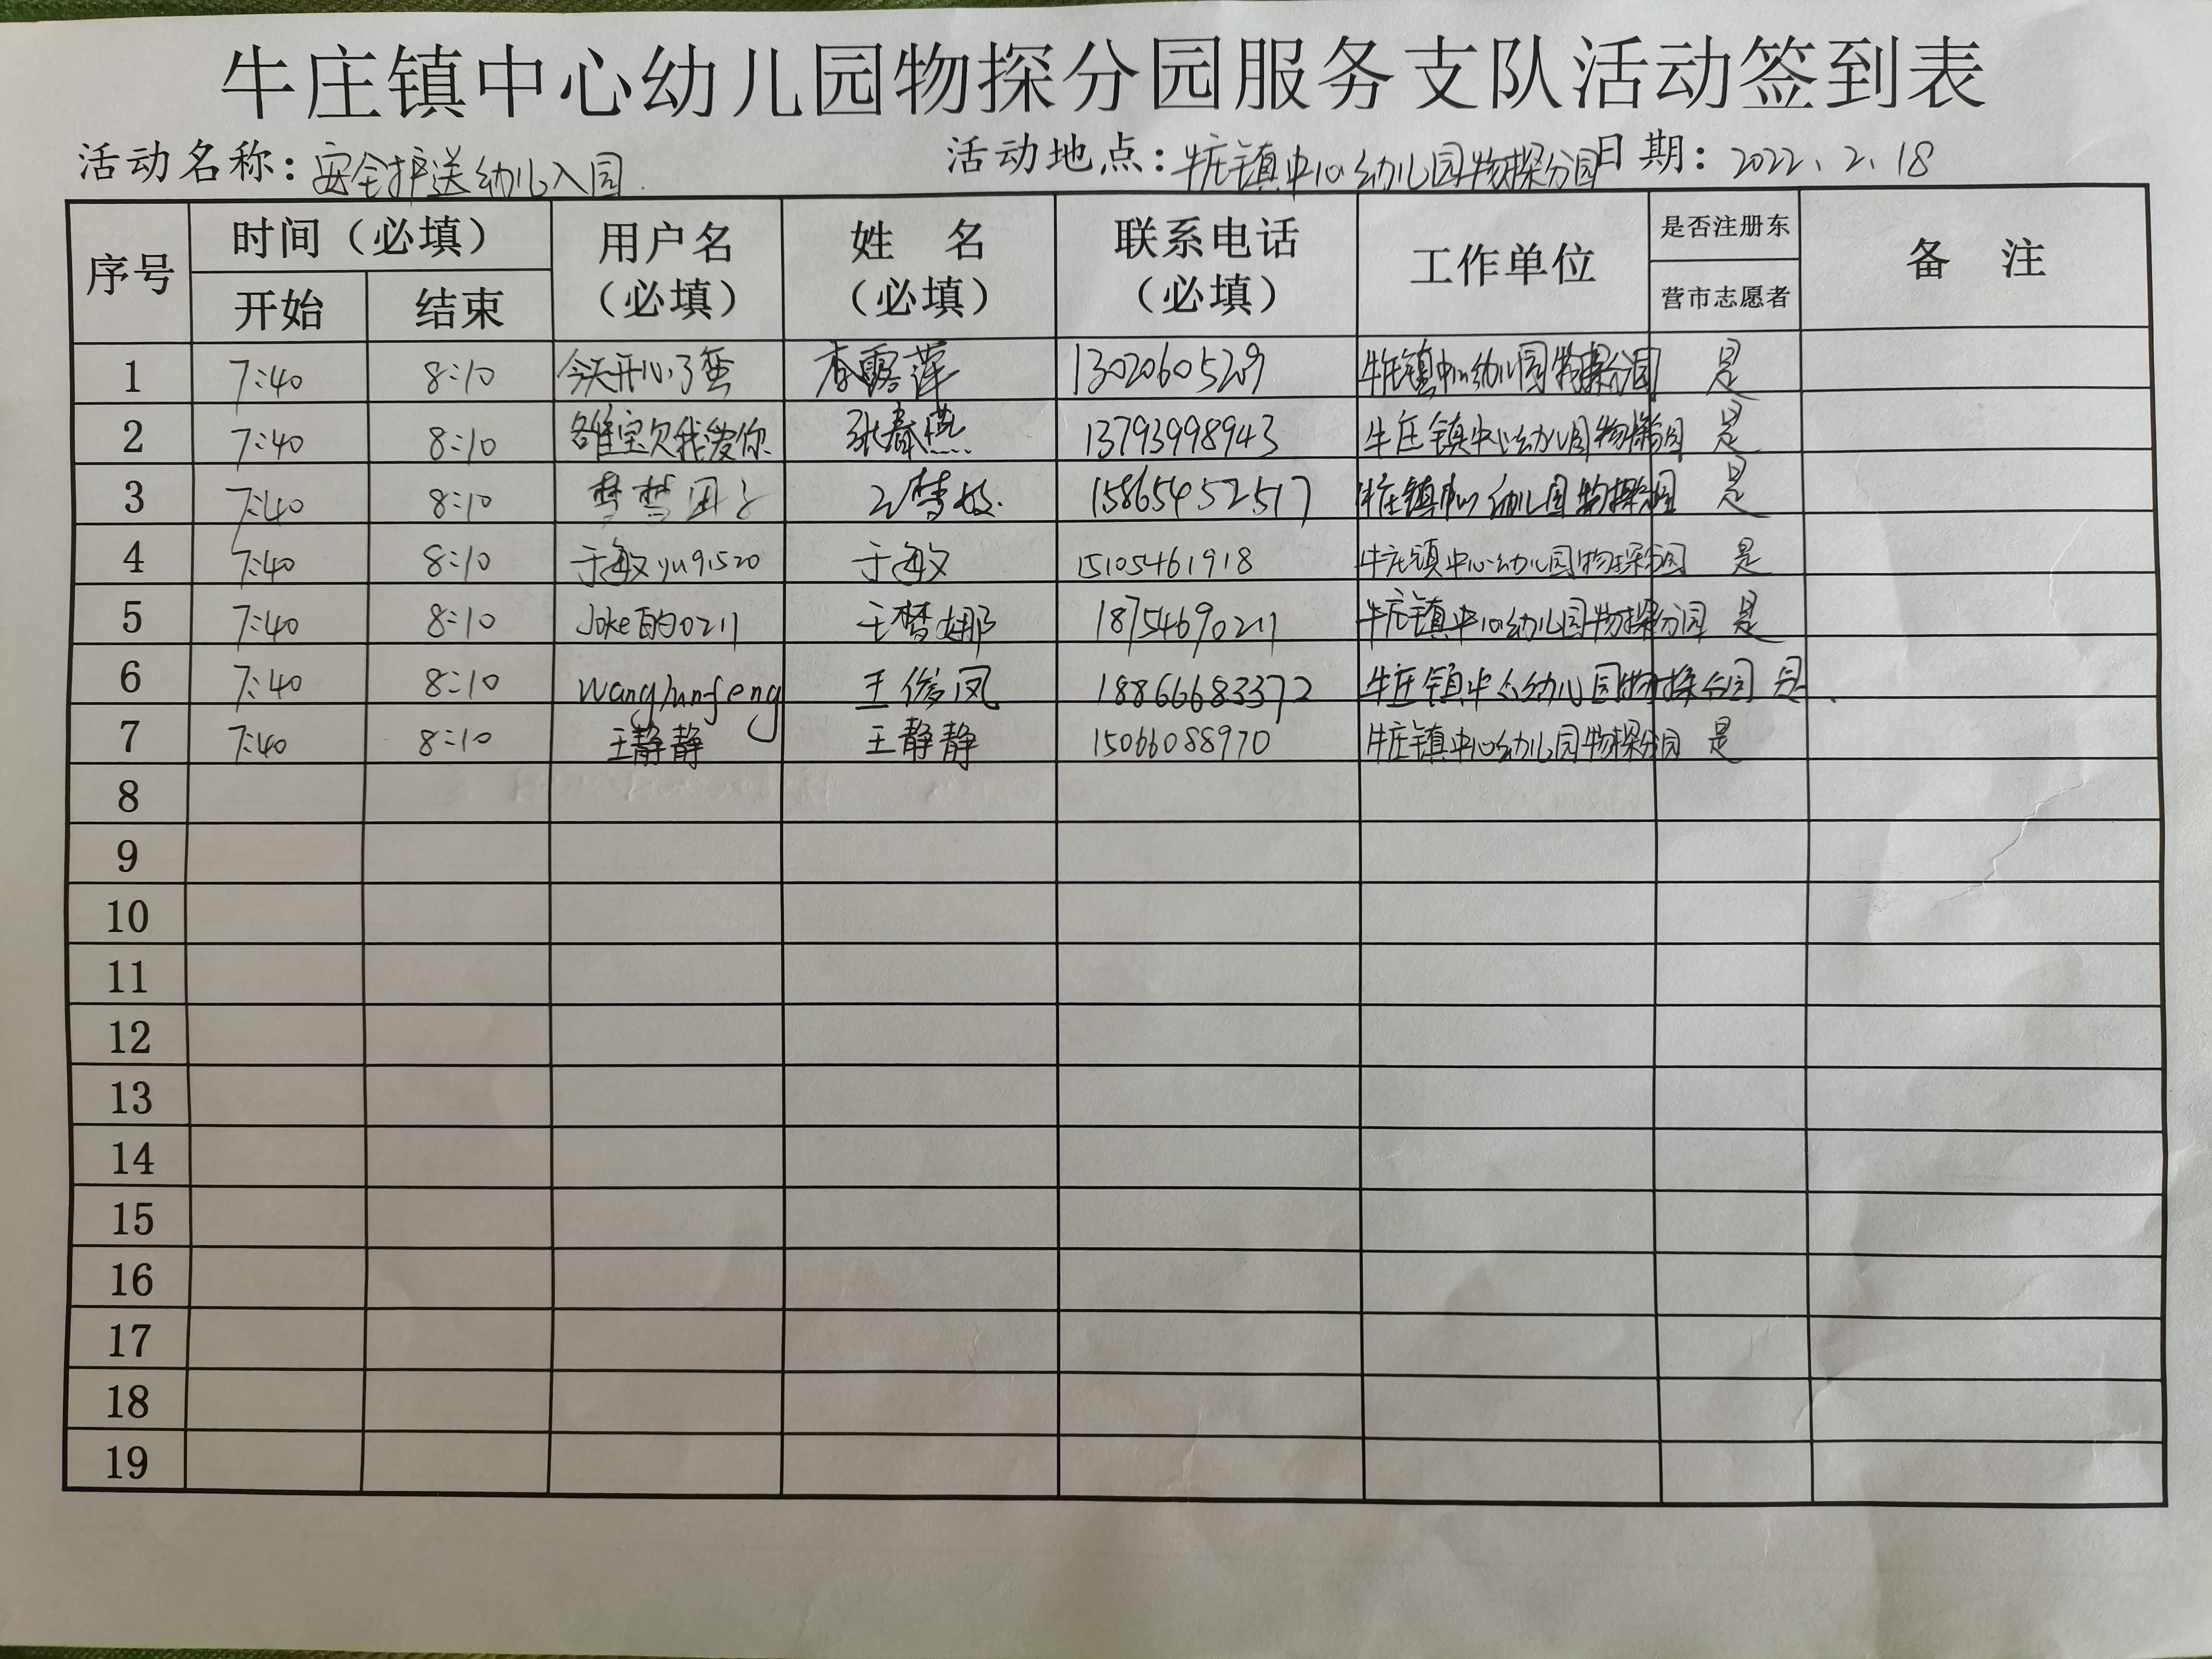 牛庄镇中心幼儿园物探分园服务支队活动签到表
活动名称：安全护送幼儿入园 活动地点：牛庄镇中心幼儿园物探分园 日期：2022、2、18
序号 时间（必填） 开始 结束 用户名（必填） 姓 名（必填） 联系电话（必填） 工作单位 是否注册东营市志愿者 备 注
1 7:40 8:10 今天开心了蛮 李露萍 13020605209 牛庄镇中心幼儿园物探分园 是
2 7:40 8:10 宝贝我爱你 张春燕 13793998943 牛庄镇中心幼儿园物探分园 是
3 7:40 8:10 梦梦团子 15865452517 牛庄镇中心幼儿园物探分园 是
4 7:40 8:10 于敏yu91520 于敏 15105461918 牛庄镇中心幼儿园物探分园 是
5 7:40 8:10 Joke的0211 王梦娜 18754690211 牛庄镇中心幼儿园物探分园 是
6 7:40 8:10 Wangjunfeng 王俊凤 18866683372 牛庄镇中心幼儿园物探分园 是
7 7:40 8:10 王静静 王静静 15066088970 牛庄镇中心幼儿园物探分园 是
8
9
10
11
12
13
14
15
16
17
18
19